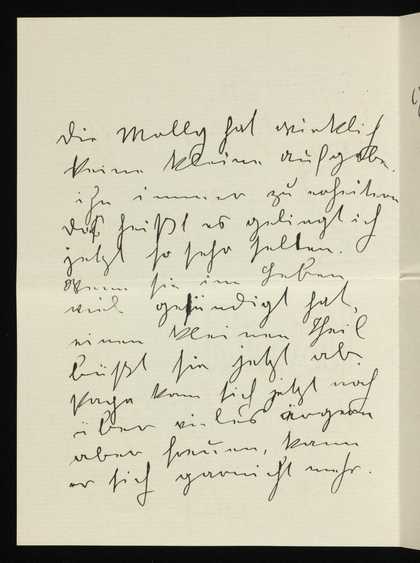 Die Molly hat wirklich
keine kleine aufgabe.
ihn immer zu erheitern
das heißt es gelingt ich
jetzt so sehr selten.
Wenn sie im Leben
viel gesündigt hat,
einen kleinen Theil
büßt sie jetzt ab
Papa kann sich jetzt noch
über vieles ärgern
aber freuen, kann
er sich garnicht mehr.